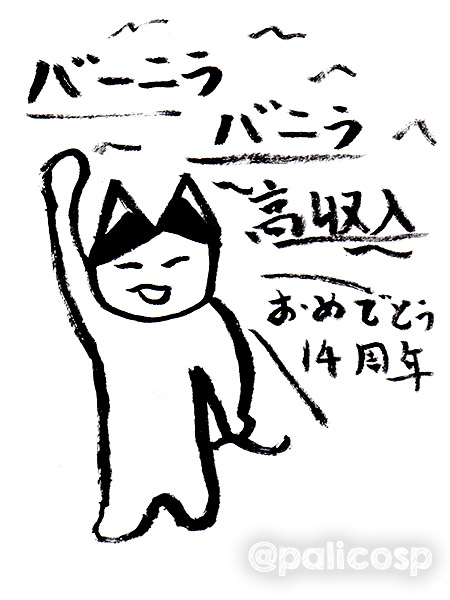 バーニラ
バニラ
高収入
おめでとう
14周年
@palicosp